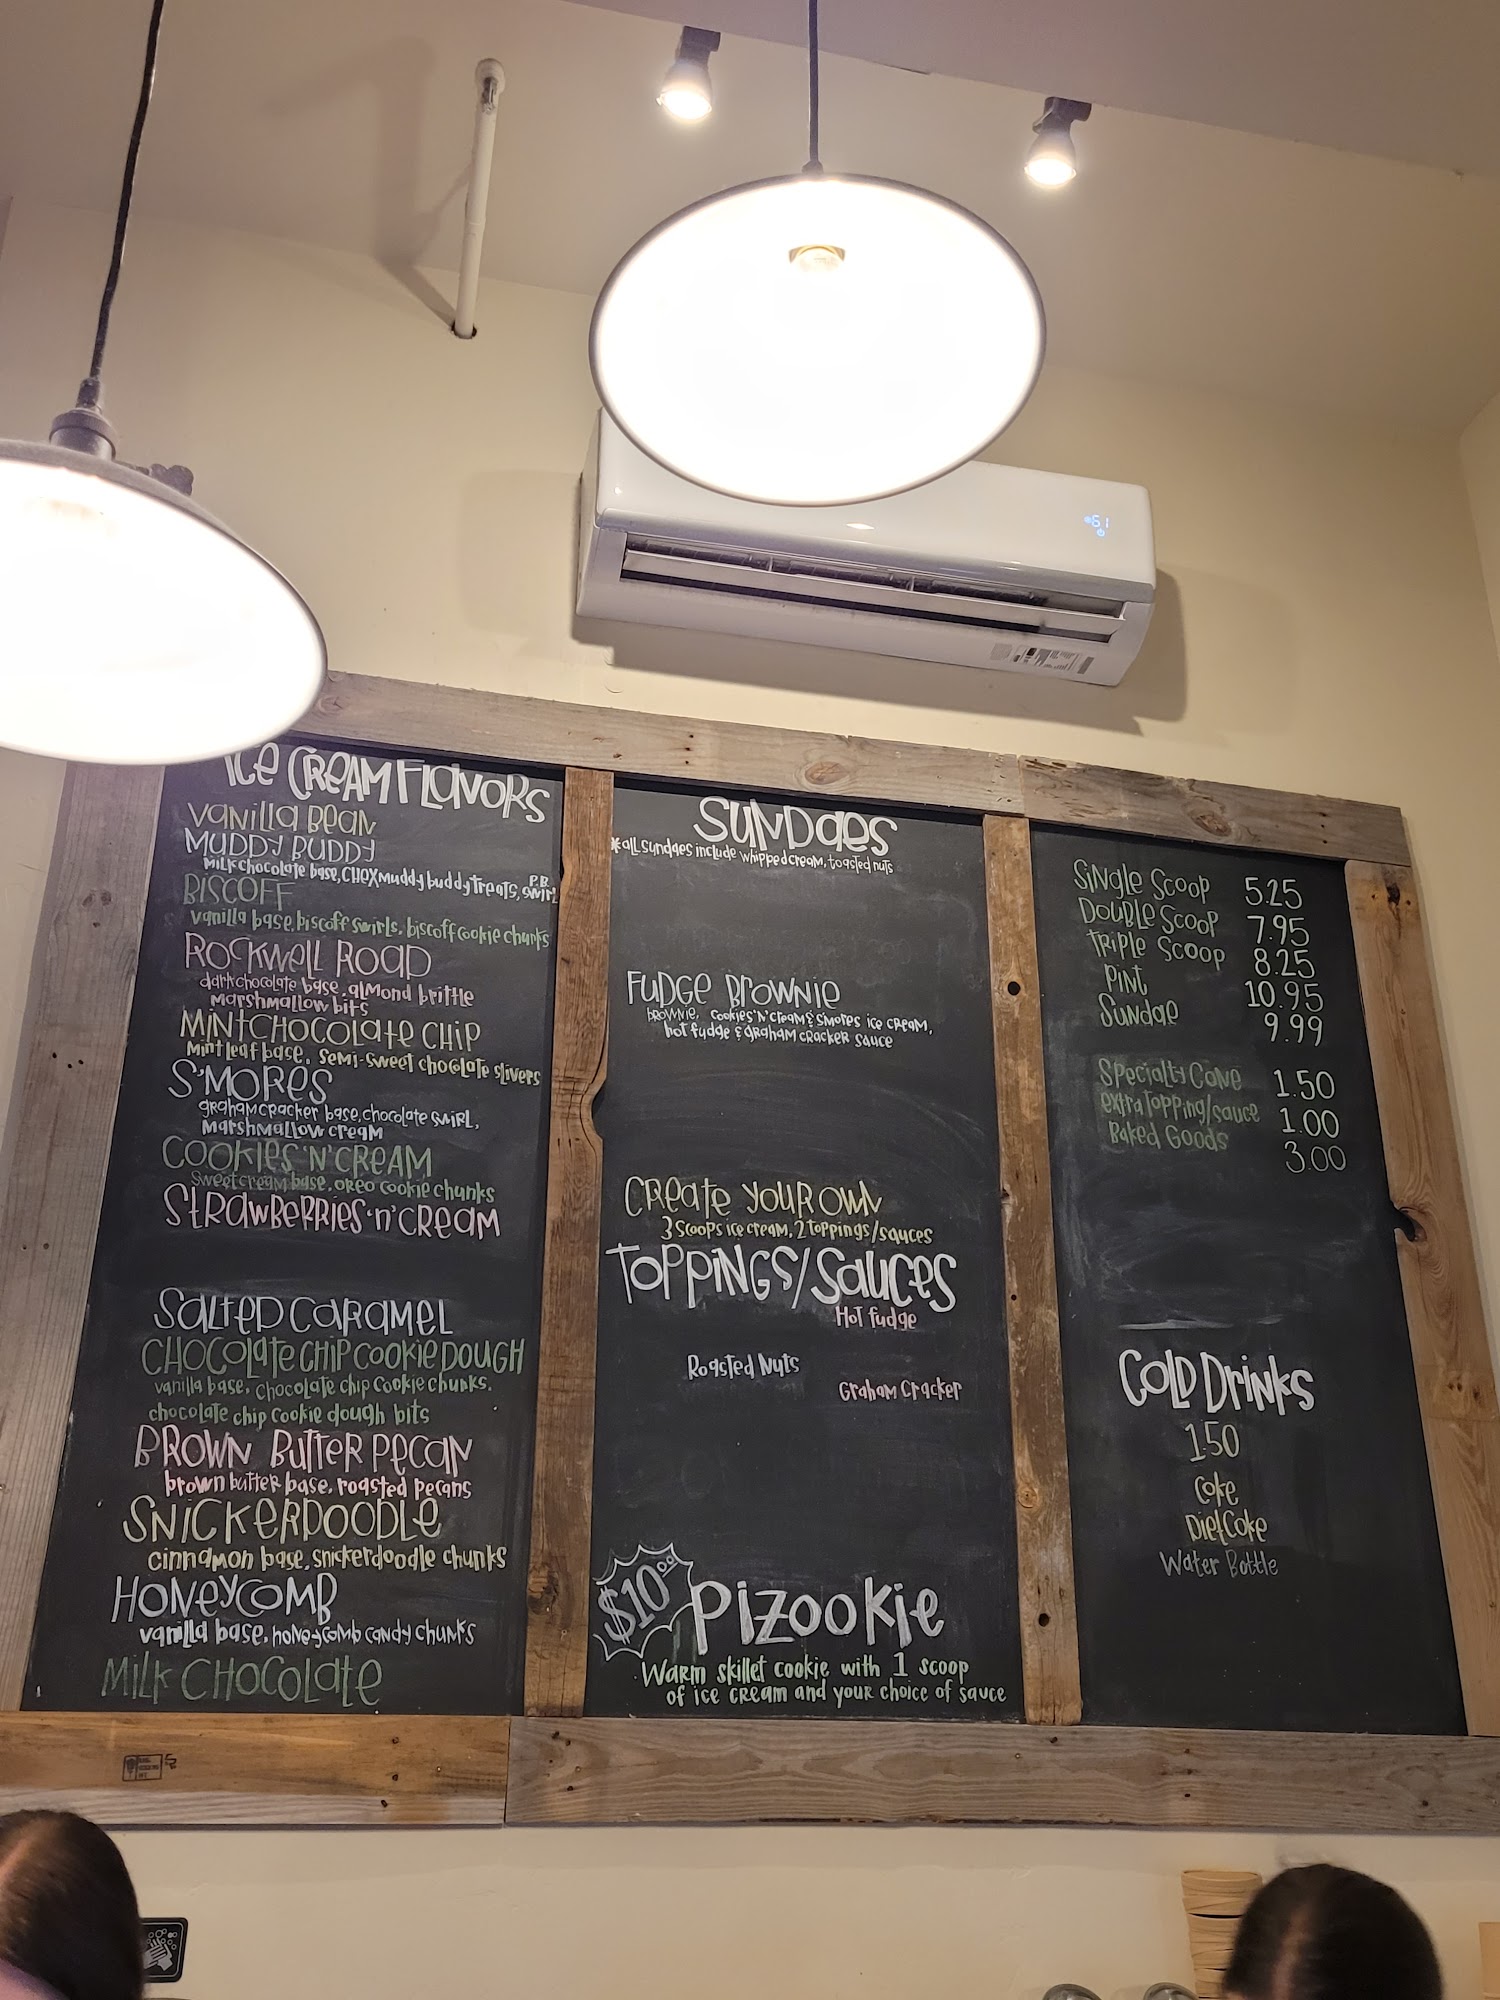 61
ICE CREAM FLAVORS
VANILLA BEAN
MUDDY BUDDY
MILK CHOCOLATE BASE, CHEX MUDDY BUDDY TREATS, P.B. SWIRL
BISCOFF
Vanilla base, biscoff swirls, biscoff cookie chunks
ROCKWELL ROAD
dark chocolate base, almond brittle
marshmallow bits
MINT CHOCOLATE CHIP
Mint leaf base, semi-sweet chocolate slivers
S'MORES
graham cracker base, chocolate swirl,
marshmallow cream
COOKIES 'N' CREAM
Sweet cream base, oreo cookie chunks
STRAWBERRIES 'n' CREAM
SALTED CARAMEL
CHOCOLATE CHIP COOKIE DOUGH
vanilla base, chocolate chip cookie chunks,
chocolate chip cookie dough bits
BROWN BUTTER PECAN
brown butter base, roasted pecans
SNICKERDOODLE
cinnamon base, snickerdoodle chunks
HONEYCOMB
vanilla base, honeycomb candy chunks
MILK CHOCOLATE
SUNDAES
*all sundaes include whipped cream, toasted nuts
FUDGE BROWNIE
BROWNIE, COOKIES 'N' CREAM & S'MORES ICE CREAM,
hot fudge & graham cracker sauce
CREATE YOUR OWN
3 scoops ice cream, 2 toppings/sauces
TOPPINGS/SAUCES
Hot fudge
Roasted Nuts
Graham Cracker
$10.00 PIZOOKIE
Warm skillet cookie with 1 scoop
of ice cream and your choice of sauce
Single Scoop 5.25
Double Scoop 7.95
Triple Scoop 8.25
Pint 10.95
Sundae 9.99
Specialty Cone 1.50
extra topping/sauce 1.00
Baked Goods 3.00
COLD DRINKS
1.50
Coke
Diet Coke
Water Bottle